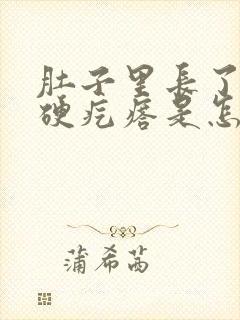 肚子里长了
硬疙瘩是怎
蒲希茜